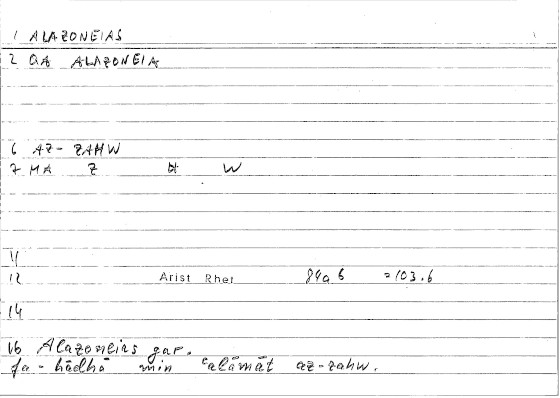 1 ALAZONEIAS
2 GA ALAZONEIA
6 AZ-ZAHW
7 MA Z H W
11
12 Arist Rhet 84a6 =103.6
14
16 Alazoneias gar.
fa-hādhā min ʿalāmāt az-zahw.